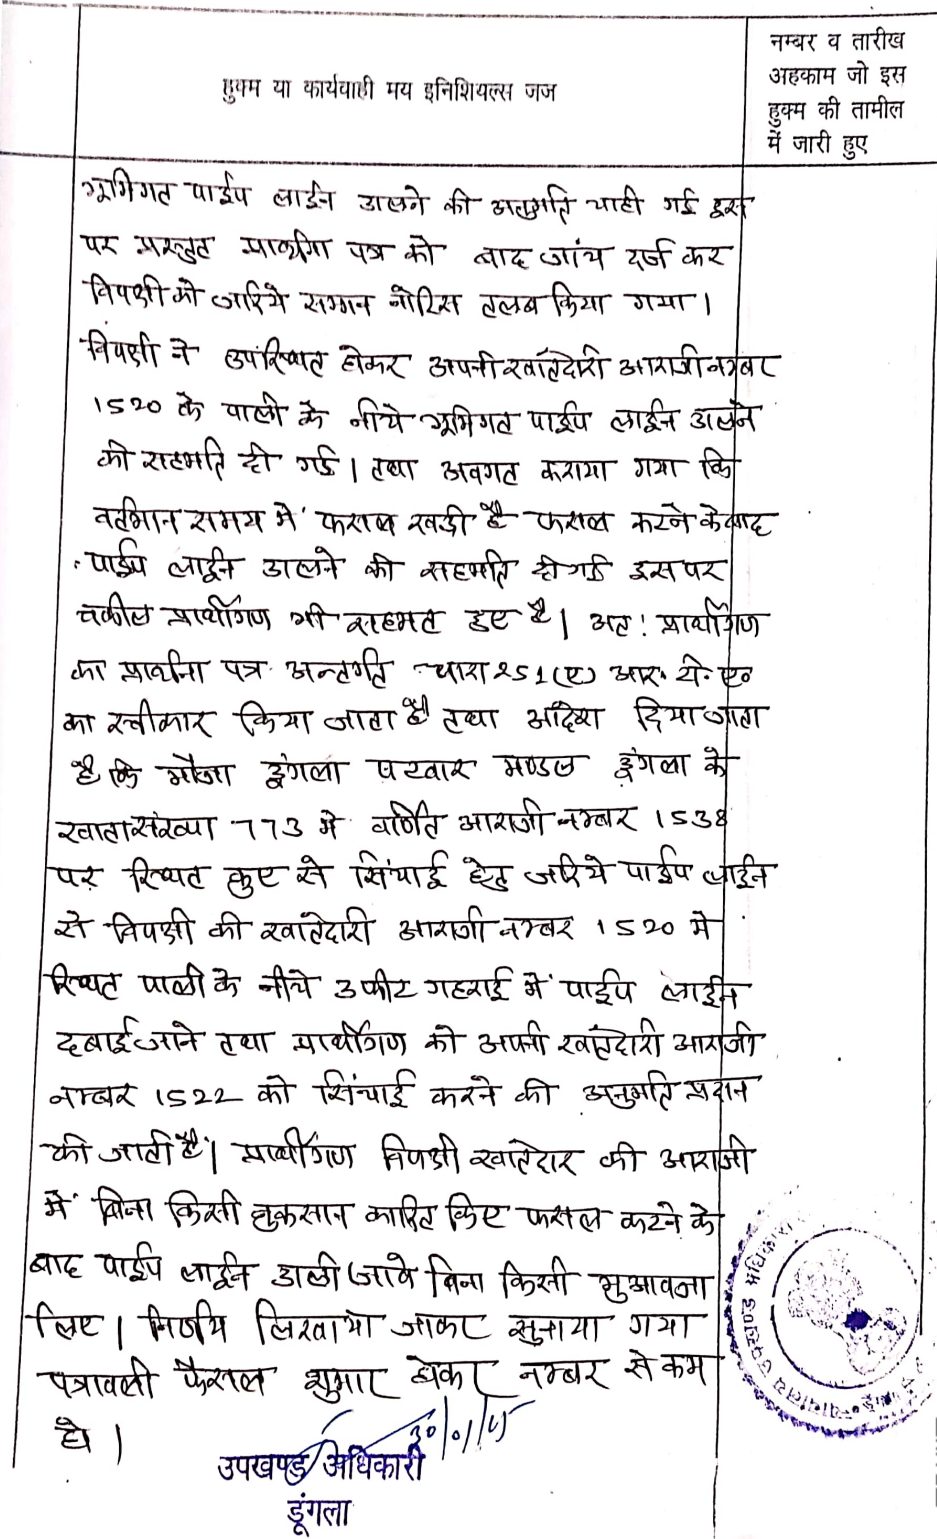 हुक्म या कार्यवाही मय इनिशियल्स जज
नम्बर व तारीख
अहकाम जो इस
हुक्म की तामील
में जारी हुए
भूमिगत पाईप लाईन डालने की अनुमति चाही गई इस
पर प्रस्तुत प्रार्थना पत्र को बाद जांच दर्ज कर
विपक्षी को जरिये सम्मन नोटिस तलब किया गया।
विपक्षी ने उपस्थित होकर अपनी खातेदारी आराजी नम्बर
1520 के पाली के नीचे भूमिगत पाईप लाईन डालने
की सहमति दी गई। तथा अवगत कराया गया कि
वर्तमान समय में फसल खडी है फसल कटने के बाद
पाईप लाईन डालने की सहमति दी गई इस पर
वकील प्रार्थीगण भी सहमत हुए है। अत: प्रार्थीगण
का प्रार्थना पत्र अन्तर्गत धारा 251(ए) आर. टी. एक्ट
का स्वीकार किया जाता है तथा आदेश दिया जाता
है कि मौजा डूंगला पटवार मण्डल डूंगला के
खाता संख्या 773 मे वर्णित आराजी नम्बर 1538
पर स्थित कुए से सिंचाई हेतु जरिये पाईप लाईन
से विपक्षी की खातेदारी आराजी नम्बर 1520 मे
स्थित पाली के नीचे 3 फीट गहराई में पाईप लाईन
दबाई जाने तथा प्रार्थीगण को अपनी खातेदारी आराजी
नम्बर 1522 को सिंचाई करने की अनुमति प्रदान
की जाती है। प्रार्थीगण विपक्षी खातेदार की आराजी
में बिना किसी नुकसान कारित किए फसल कटने के
बाद पाईप लाईन डाली जावे बिना किसी मुआवजा
लिए। निर्णय लिखाया जाकर सुनाया गया
पत्रावली फैसल शुमार होकर नम्बर से कम
हो।
उपखण्ड अधिकारी
डूंगला